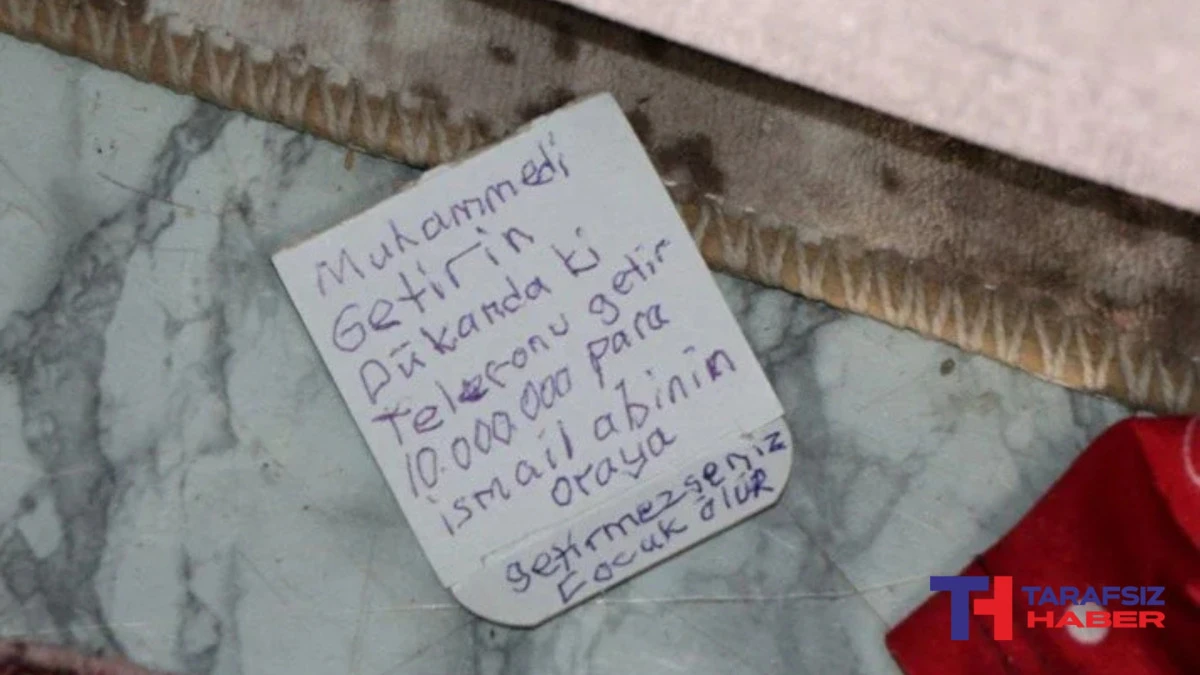 Muhammedi
Getirin
Dükanda ki
Teleronu getir
10.000.000 para
ismail abinin
oraya
getirmezseniz
Cocuk ölür
TH TARAFSIZ
HABER